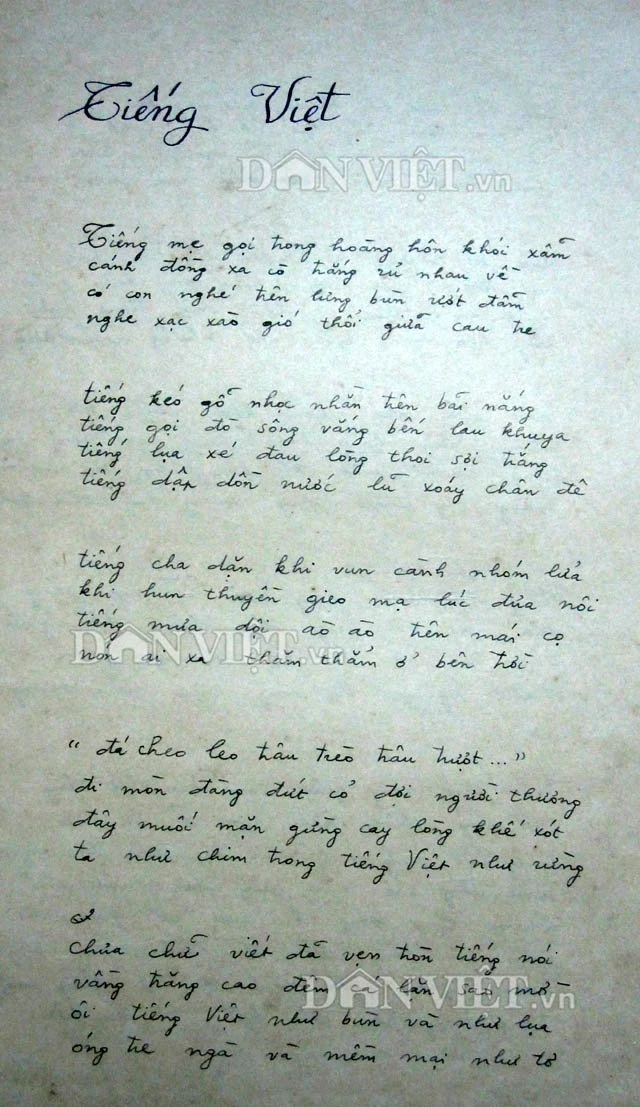 Tiếng Việt
DÂN VIỆT.vn
Tiếng mẹ gọi trong hoàng hôn khói xẫm
cánh đồng xa cò trắng rủ nhau về
có con nghé trên lưng bùn ướt đẫm
nghe xạc xào gió thổi giữa cau tre
tiếng kéo gỗ nhọc nhằn trên bãi nắng
tiếng gọi đò sông vắng bến lau khuya
tiếng lụa xé đau lòng thoi sợi trắng
tiếng dập dồn nước lũ xoáy chân đê
tiếng cha dặn khi vun cành nhóm lửa
khi hun thuyền gieo mạ lúc đưa nôi
tiếng mưa dội ào ào trên mái cọ
DÂN VIỆT.vn
nón ai xa thăm thẳm ở bên trời
"đá cheo leo trâu trèo trâu trượt..."
đi mòn đàng đứt cỏ đợi người thương
đây muối mặn gừng cay lòng khế xót
ta như chim trong tiếng Việt như rừng
chưa chữ viết đã vẹn tròn tiếng nói
vầng trăng cao đêm cá lặn sao mờ
DÂN VIỆT.vn
ôi tiếng Việt như bùn và như lụa
óng tre ngà và mềm mại như tơ